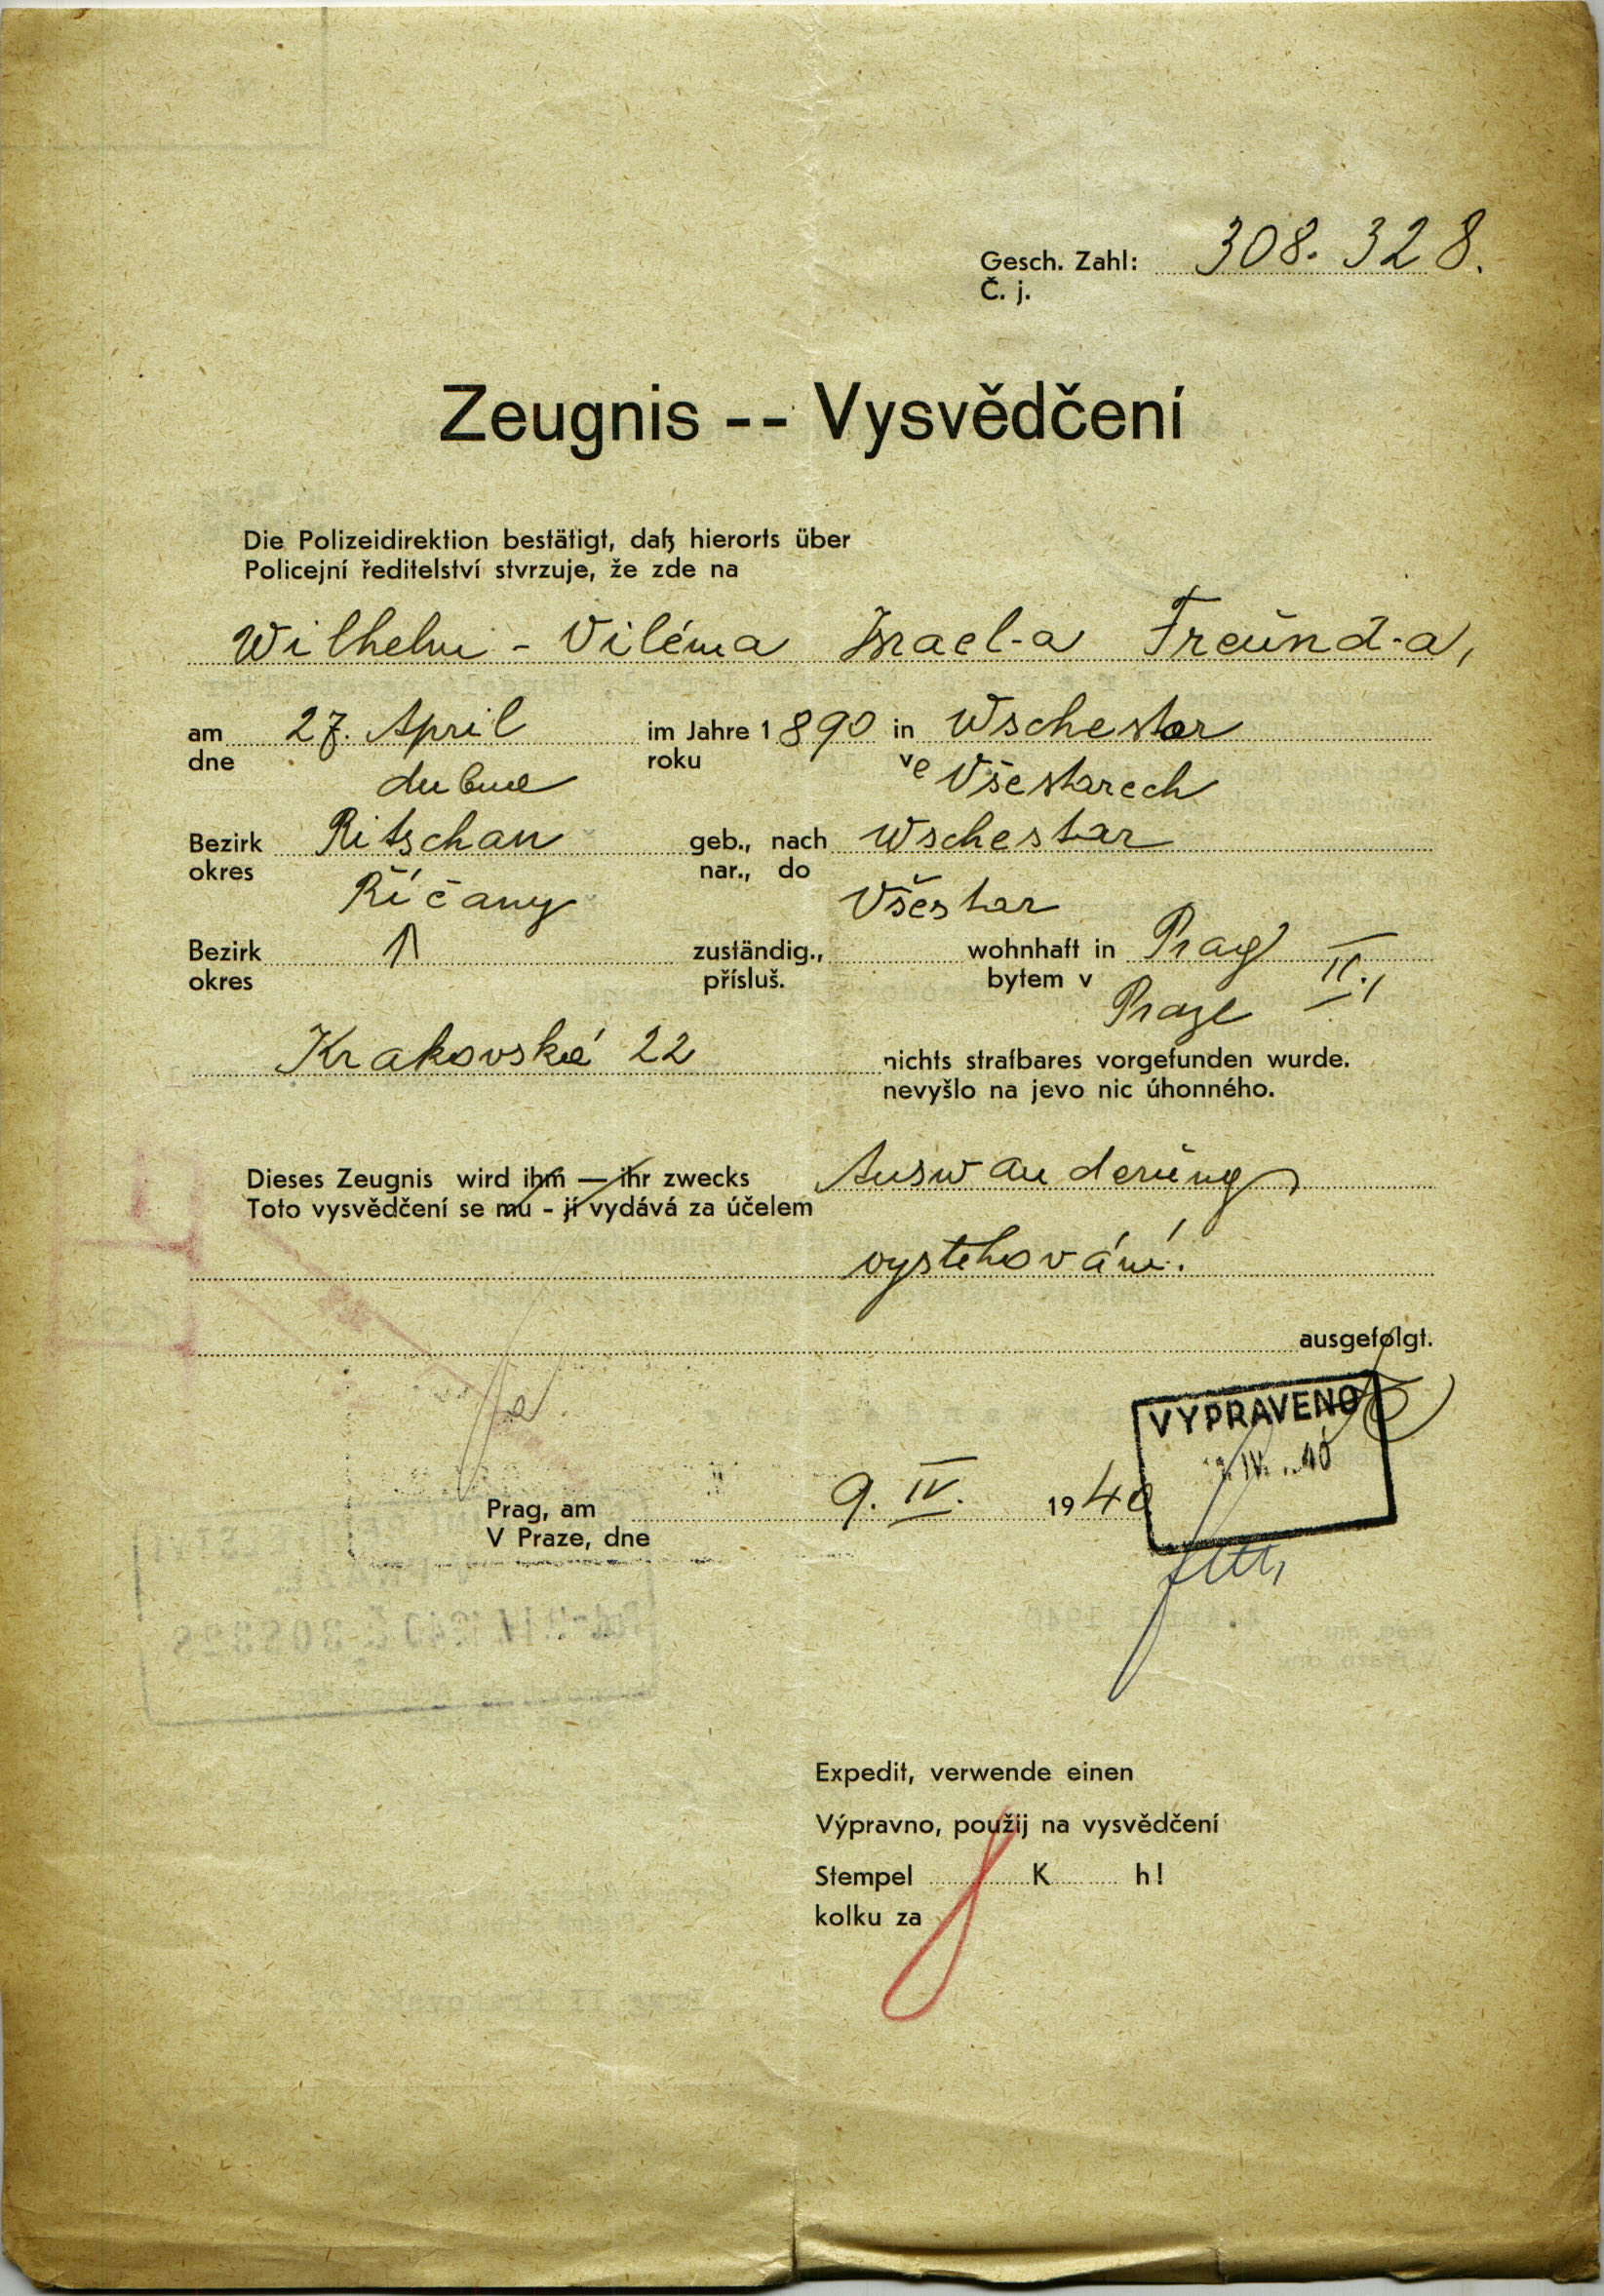 Gesch. Zahl: 308.328.
Č. j.
Zeugnis -- Vysvědčení
Die Polizeidirektion bestätigt, daß hierorts über
Policejní ředitelství stvrzuje, že zde na
Wilhelm - Viléma Israel-a Freund-a,
am 27. April im Jahre 1890 in Wschestar
dne dubna roku ve Všestarech
Bezirk Ritschan geb., nach Wschestar
okres Říčany nar., do Všestar
Bezirk zuständig., wohnhaft in Prag II.,
okres přísluš. bytem v Praze
Krakovská 22 nichts strafbares vorgefunden wurde.
nevyšlo na jevo nic úhonného.
Dieses Zeugnis wird ihm — ihr zwecks Auswanderung
Toto vysvědčení se mu - jí vydává za účelem
vystěhování.
ausgefolgt.
VYPRAVENO
IV. 40
Prag, am 9. IV. 1940
V Praze, dne
Expedit, verwende einen
Výpravno, použij na vysvědčení
Stempel K h!
kolku za